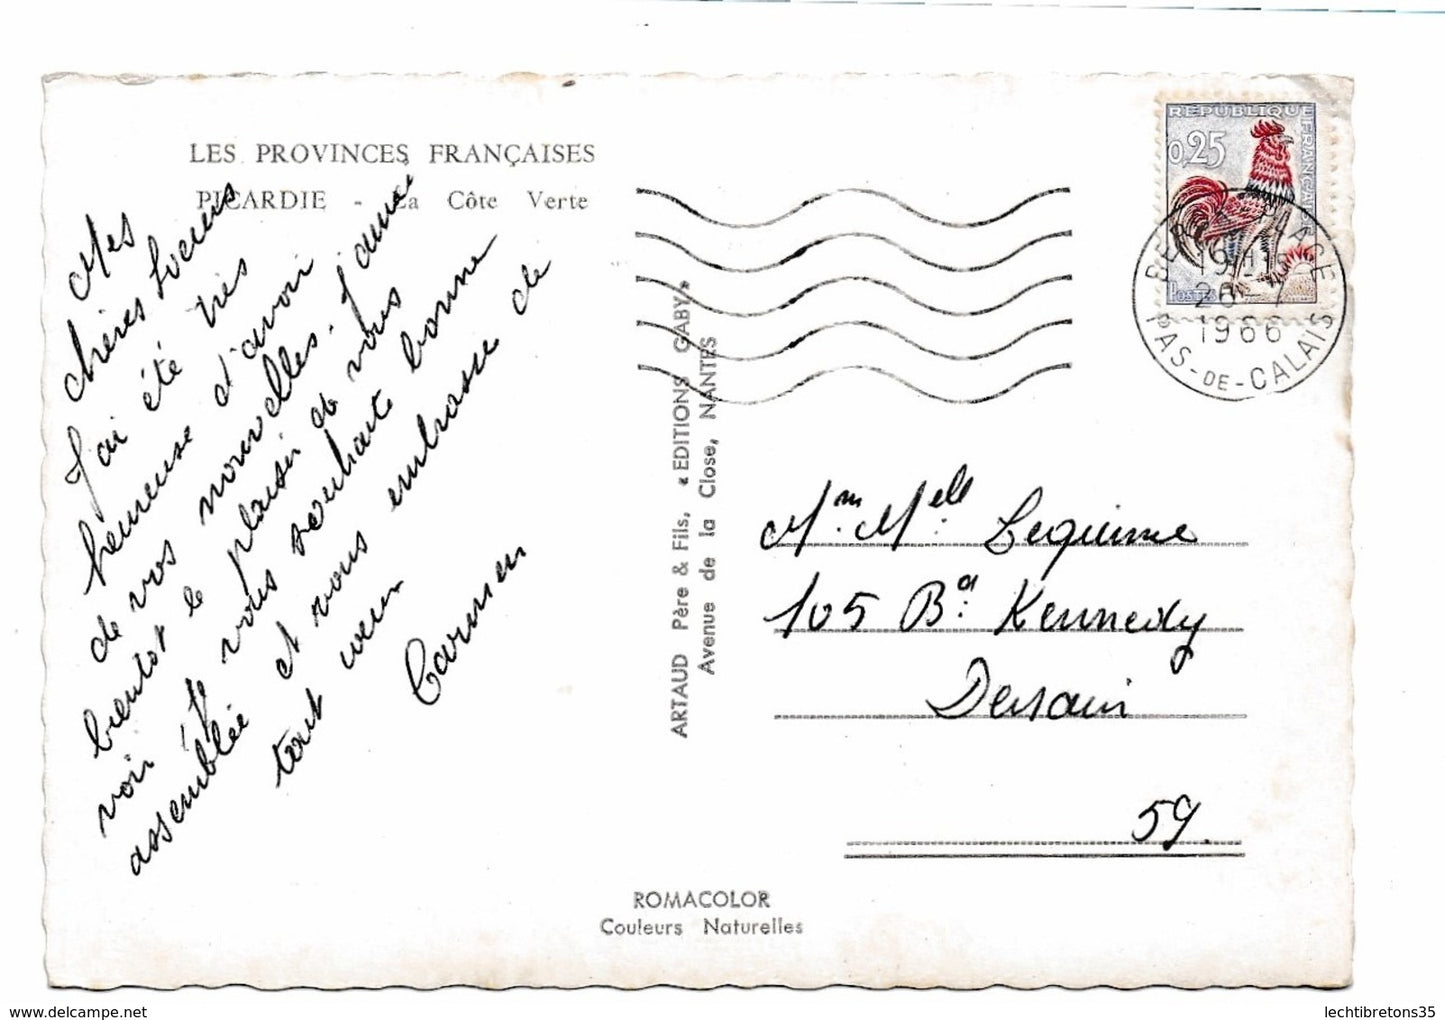 LES PROVINCES FRANÇAISES
PICARDIE - La Côte Verte
Mes
chères Soeurs
J'ai été très
heureuse d'avoir
de vos nouvelles. J'aurai
bientot le plaisir de vous
voir. Je vous souhaite bonne
assemblée et vous embrasse de
tout coeur
Carmen
ARTAUD Père & Fils, « EDITIONS GABY »
Avenue de la Close, NANTES
REPUBLIQUE
FRANÇAISE
0,25
POSTES
BERCK PLAGE
19H
26 - 7
1966
PAS-DE-CALAIS
Mm Melle Lequime
105 Bd Kennedy
Denain
59.
ROMACOLOR
Couleurs Naturelles
delcampe.net
lechtibretons35